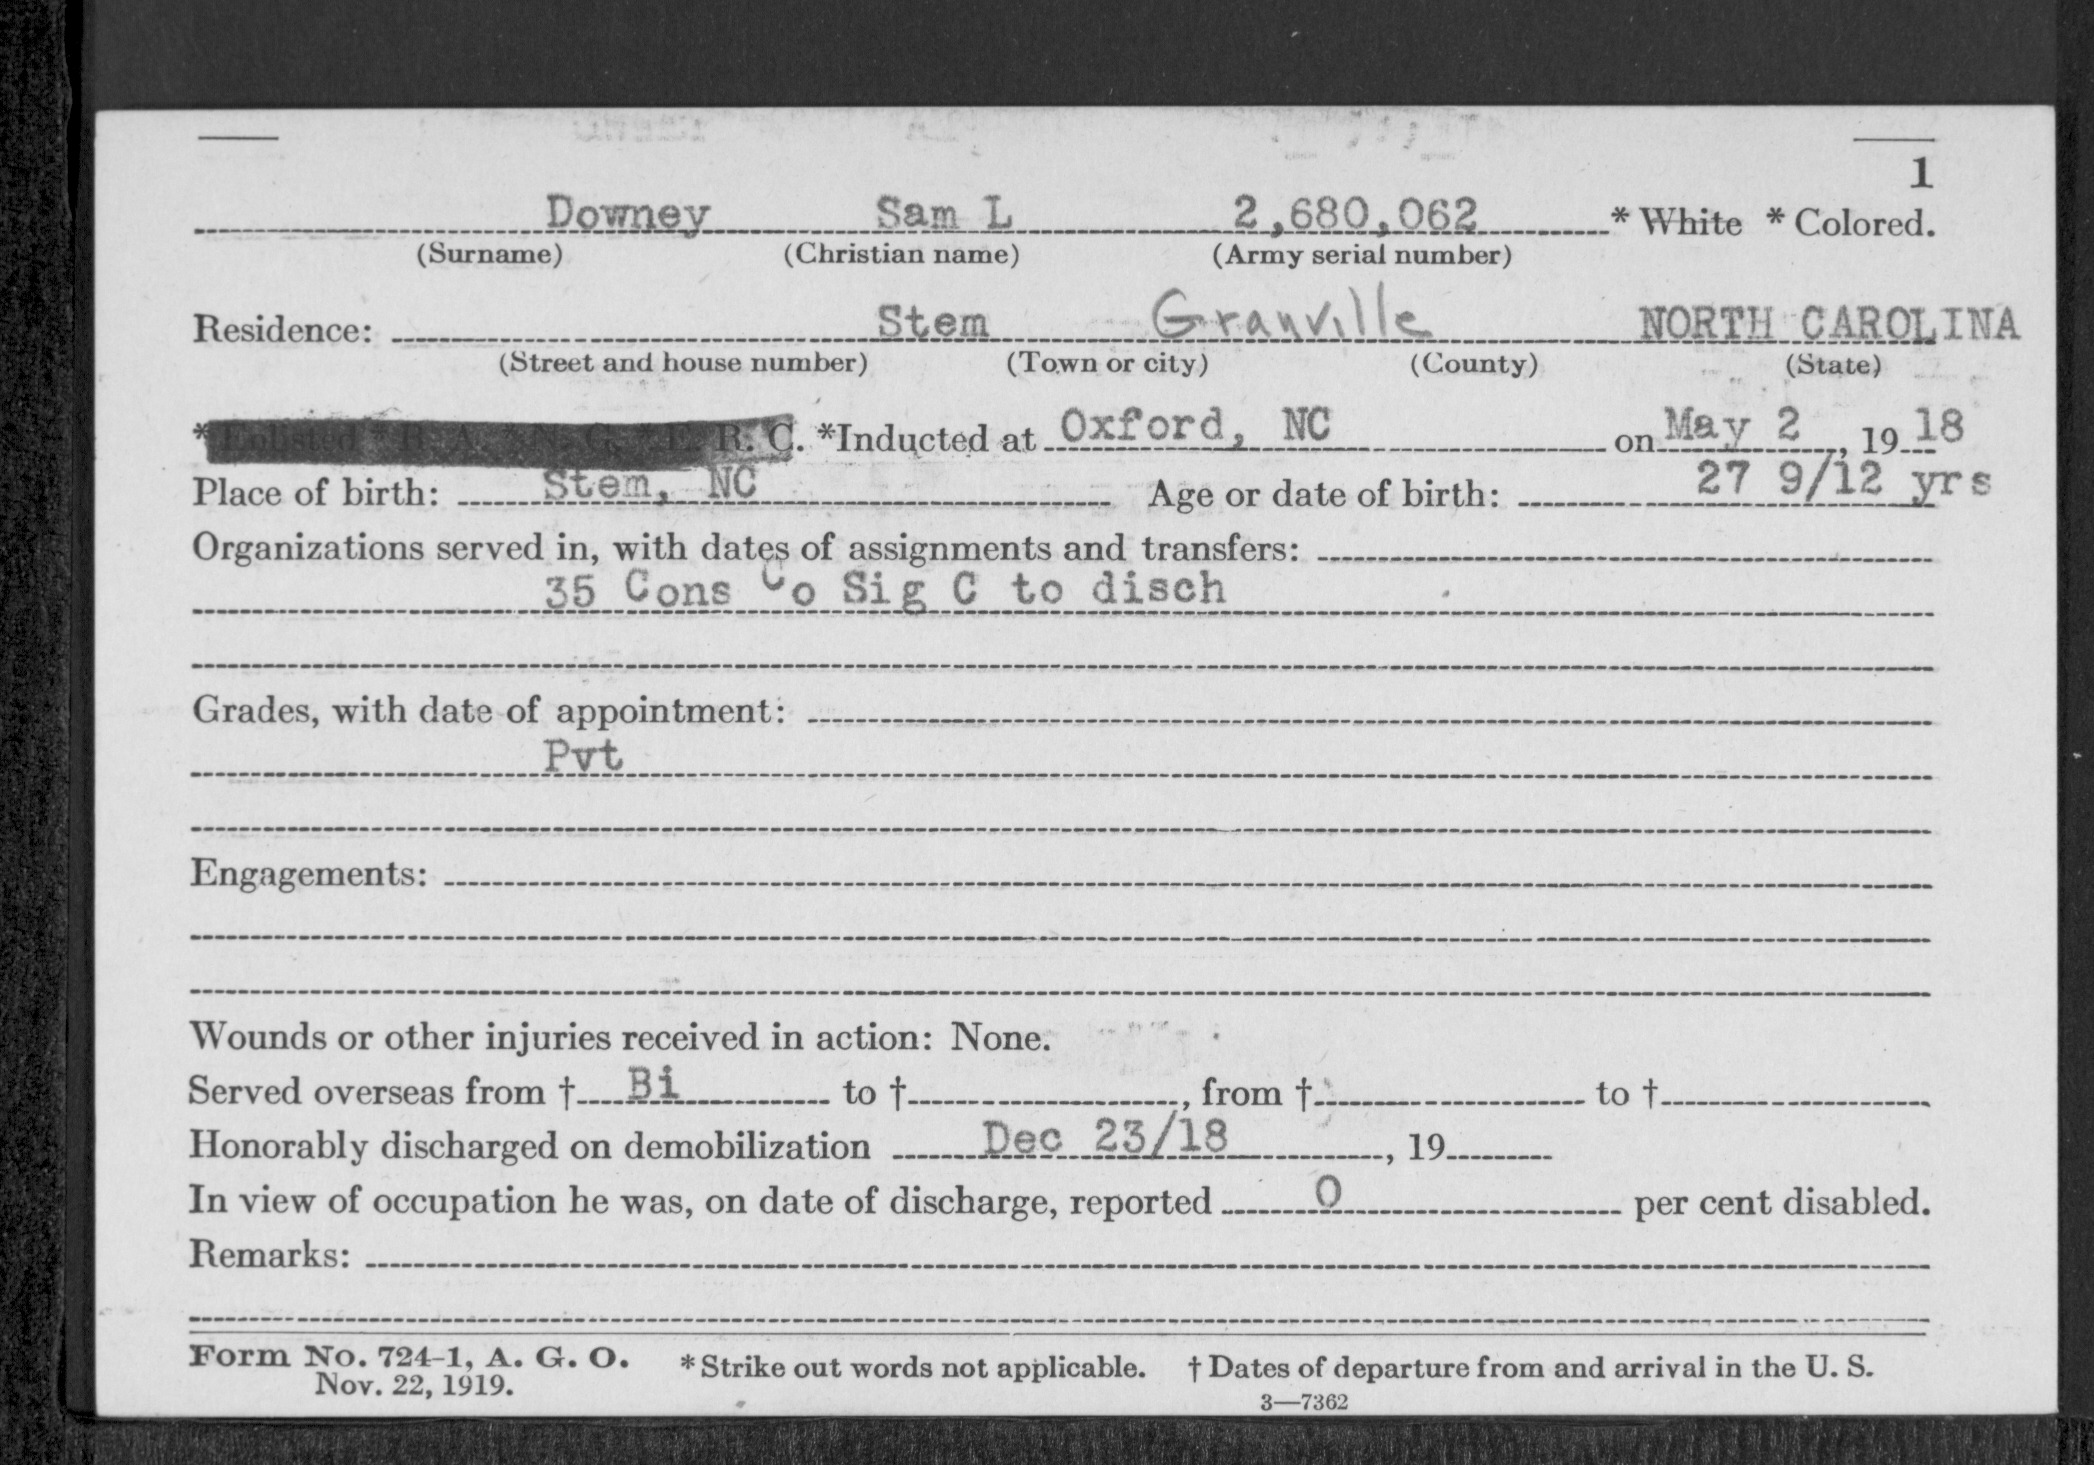 1
Downey Sam L 2,680,062 * White * Colored.
(Surname) (Christian name) (Army serial number)
Residence: Stem Granville NORTH CAROLINA
(Street and house number) (Town or city) (County) (State)
* Enlisted * R. A. * N. G. * E. R. C. *Inducted at Oxford, NC on May 2, 19 18
Place of birth: Stem, NC Age or date of birth: 27 9/12 yrs
Organizations served in, with dates of assignments and transfers:
35 Cons Co Sig C to disch
Grades, with date of appointment:
Pvt
Engagements:
Wounds or other injuries received in action: None.
Served overseas from † Bi to †, from † to †
Honorably discharged on demobilization Dec 23/18, 19
In view of occupation he was, on date of discharge, reported 0 per cent disabled.
Remarks:
Form No. 724-1, A. G. O. * Strike out words not applicable. † Dates of departure from and arrival in the U. S.
Nov. 22, 1919.
3—7362